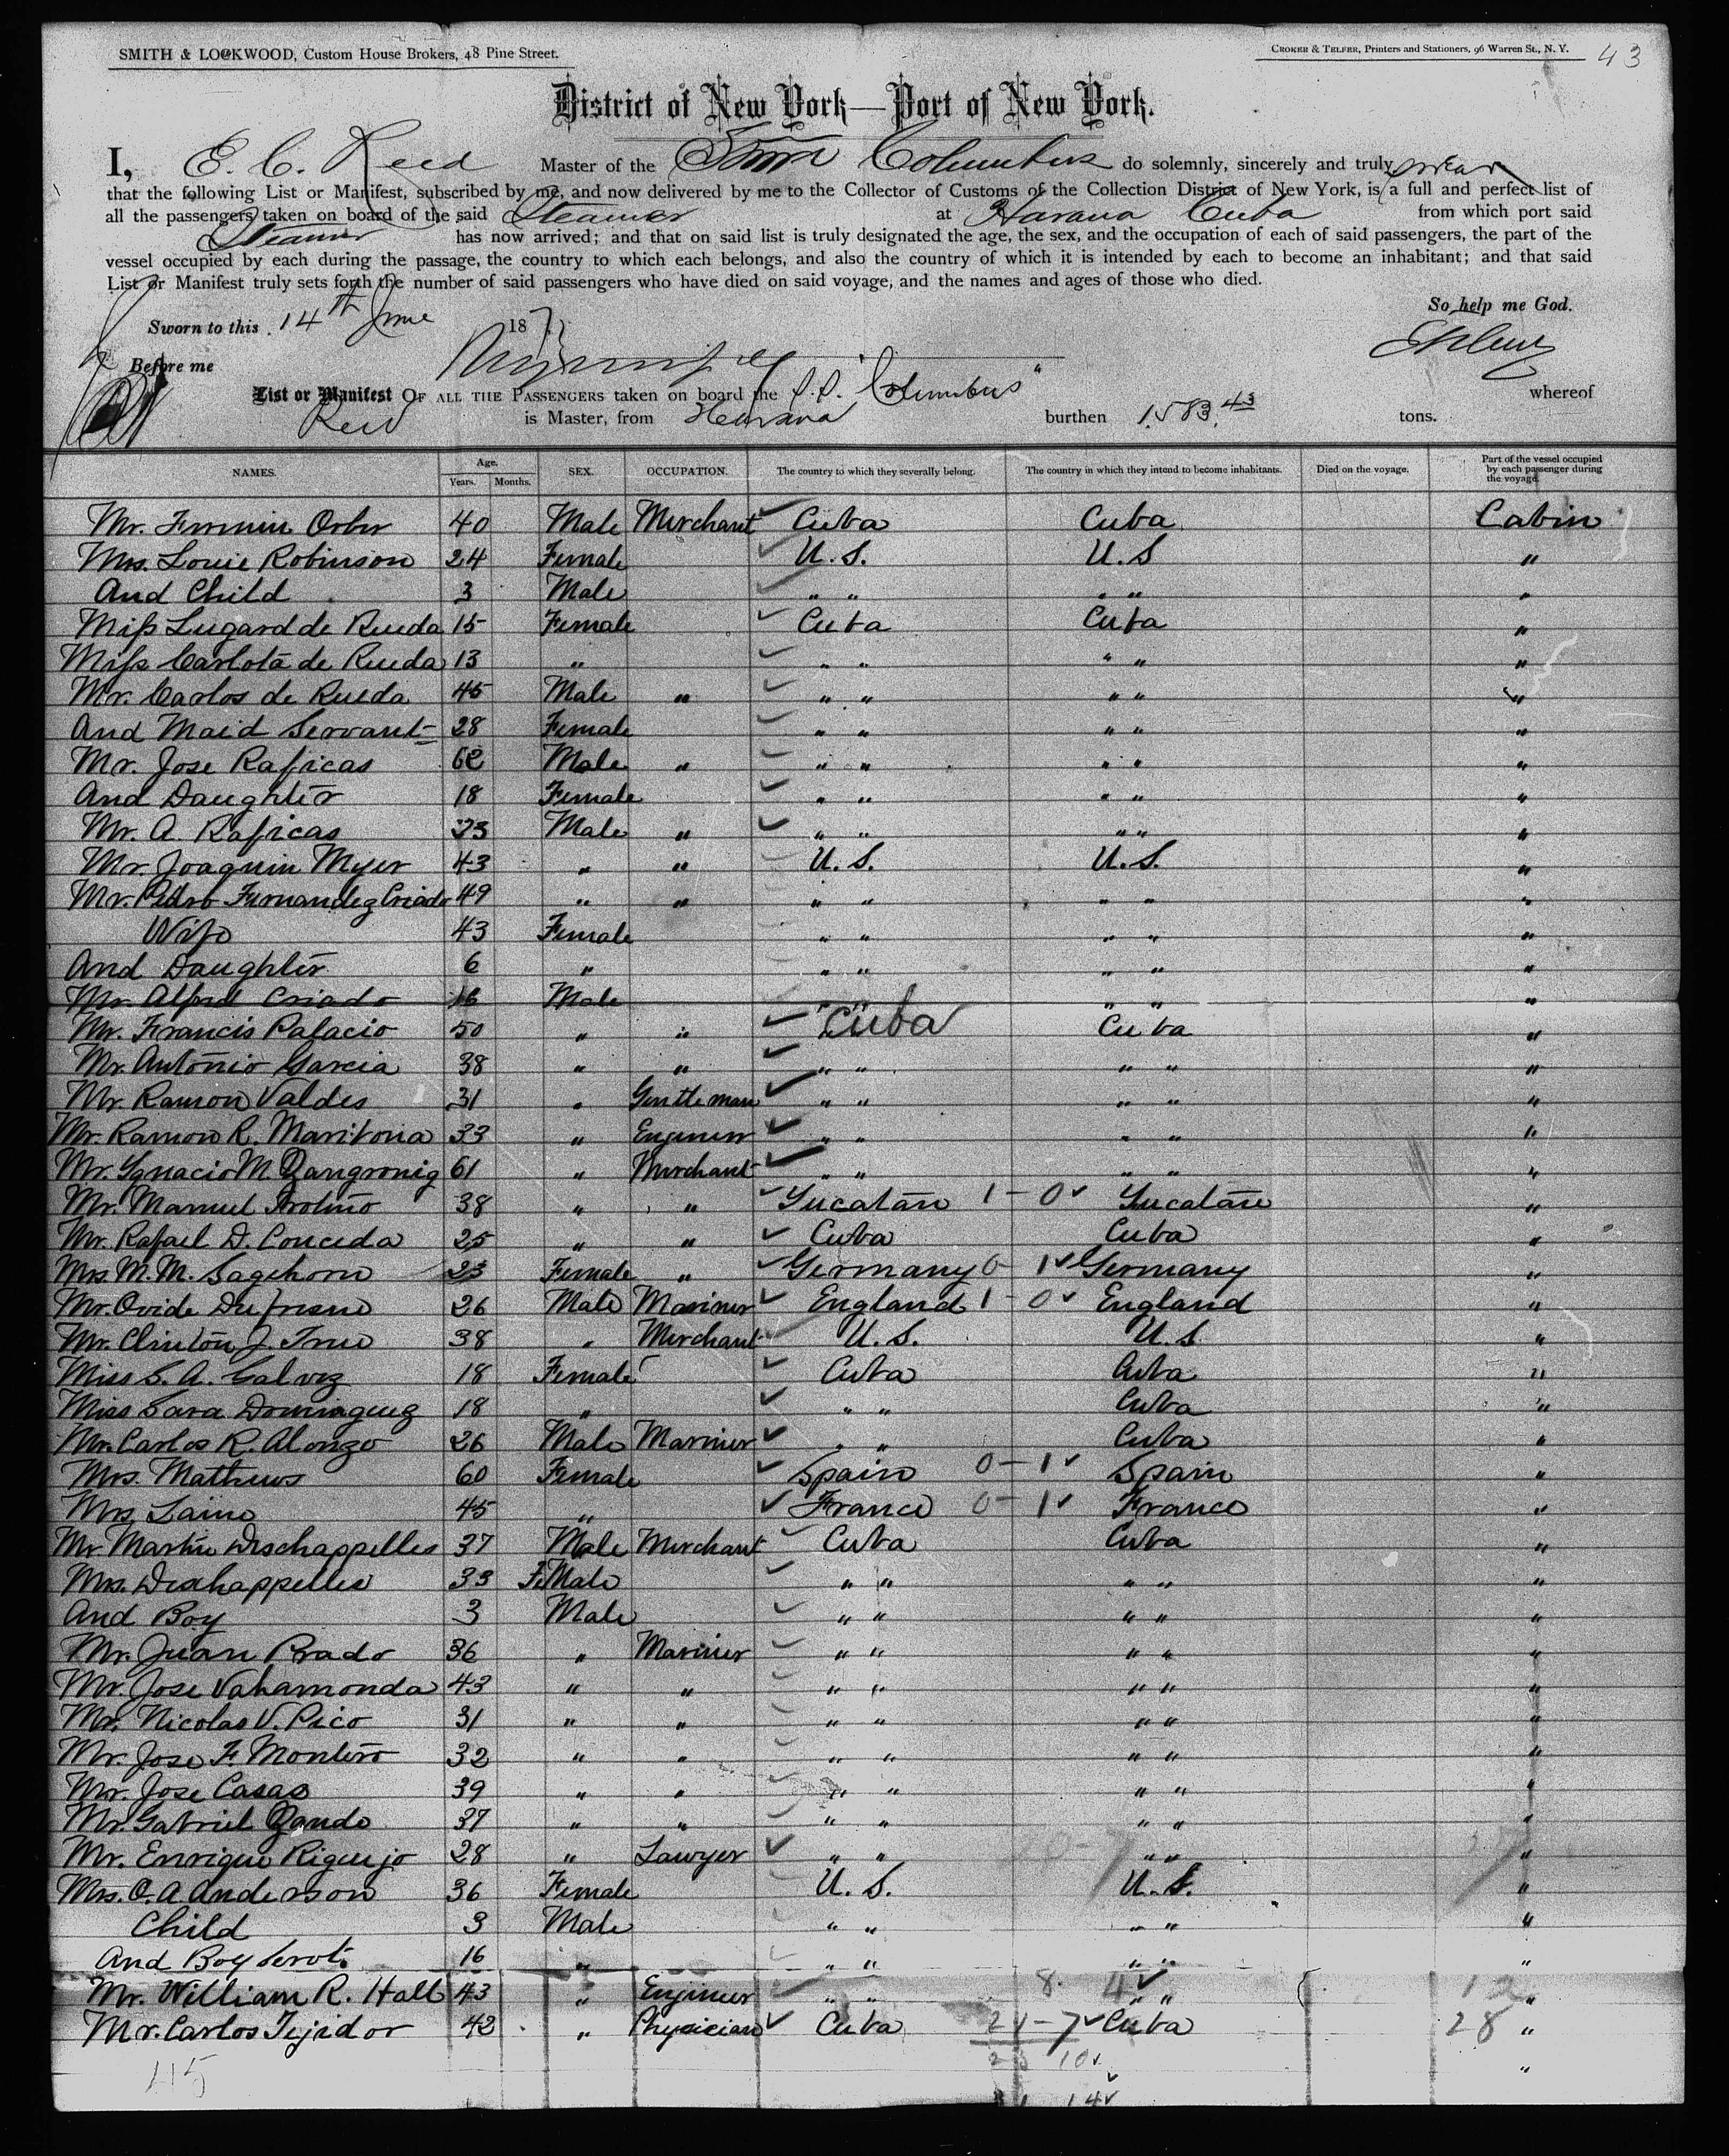 SMITH & LOCKWOOD, Custom House Brokers, 48 Pine Street.
CROKER & TELFER, Printers and Stationers, 96 Warren St., N. Y.
43
District of New York—Port of New York.
I, E. C. Reed Master of the Columbus do solemnly, sincerely and truly swear
that the following List or Manifest, subscribed by me, and now delivered by me to the Collector of Customs of the Collection District of New York, is a full and perfect list of
all the passengers taken on board of the said Steamer at Havana Cuba from which port said
Steamer has now arrived; and that on said list is truly designated the age, the sex, and the occupation of each of said passengers, the part of the
vessel occupied by each during the passage, the country to which each belongs, and also the country of which it is intended by each to become an inhabitant; and that said
List or Manifest truly sets forth the number of said passengers who have died on said voyage, and the names and ages of those who died.
So help me God.
Sworn to this 14th June 187
Before me
List or Manifest OF ALL THE PASSENGERS taken on board the S.S. Columbus" whereof
Reed is Master, from Havana burthen 1583.43 tons.
NAMES. Age. Years. Months. SEX. OCCUPATION. The country to which they severally belong. The country in which they intend to become inhabitants. Died on the voyage. Part of the vessel occupied by each passenger during the voyage.
Mr. Fermin 40 Male Merchant Cuba Cuba Cabin
Mrs. Louie Robinson 24 Female U.S. U.S "
And Child 3 Male " " " " "
Miss Lugard de Rueda 15 Female Cuba Cuba "
Miss Carlota de Rueda 13 " " " " " "
Mr. Carlos de Rueda 45 Male " " " " " "
And Maid Servant 28 Female " " " " "
Mr. Jose Raficas 62 Male " " " " " "
And Daughter 18 Female " " " " "
Mr. A. Raficas 23 Male " " " " " "
Mr. Joaquin Myer 43 " " U.S. U.S. "
Mr. Pedro Fernandez Criado 49 " " " " " " "
Wife 43 Female " " " " "
And Daughter 6 " " " " " "
Mr. Alfred Criado 16 Male " " " " "
Mr. Francis Palacio 50 " " Cuba Cuba "
Mr. Antonio Garcia 38 " " " " " " "
Mr. Ramon Valdes 31 " Gentleman " " " " "
Mr. Ramon R. Maritoria 33 " Engineer " " " " "
Mr. Ygnacio M. Zangronig 61 " Merchant " " " " "
Mr. Manuel 38 " " Yucatan 1 - 0 Yucatan "
Mr. Rafael D. Conceda 25 " " Cuba Cuba "
Mrs M. M. Sagehorn 23 Female " Germany 0 - 1 Germany "
Mr. Ovide Dufresne 26 Male Mariner England 1 - 0 England "
Mr. Clinton J. True 38 " Merchant U.S. U.S. "
Miss S. A. Galvez 18 Female Cuba Cuba "
Miss Sara Dominguez 18 " " " Cuba "
Mr. Carlos R. Alonzo 26 Male Mariner " " Cuba "
Mrs. Mathews 60 Female Spain 0 - 1 Spain "
Mrs Laine 45 " France 0 - 1 France "
Mr Martin Deschappelles 37 Male Merchant Cuba Cuba "
Mrs. Deschappelles 33 FeMale " " " " "
And Boy 3 Male " " " " "
Mr. Juan Prado 36 " Mariner " " " " "
Mr. Jose Vahamonda 43 " " " " " " "
Mr. Nicolas V. Pico 31 " " " " " " "
Mr. Jose F. Montero 32 " " " " " " "
Mr. Jose Casas 39 " " " " " " "
Mr. Gabriel Zando 37 " " " " " " "
Mr. Enrique Riguejo 28 " Lawyer " " " " "
Mrs. C. A. Anderson 36 Female U.S. U.S. "
Child 3 Male " " " " "
And Boy Servt. 16 " " " " " "
Mr. William R. Hall 43 " Engineer " " 8. 4 " " 12 "
Mr. Carlos Tejidor 42 " Physician Cuba 21-7 Cuba 28 "
45 10 "
14